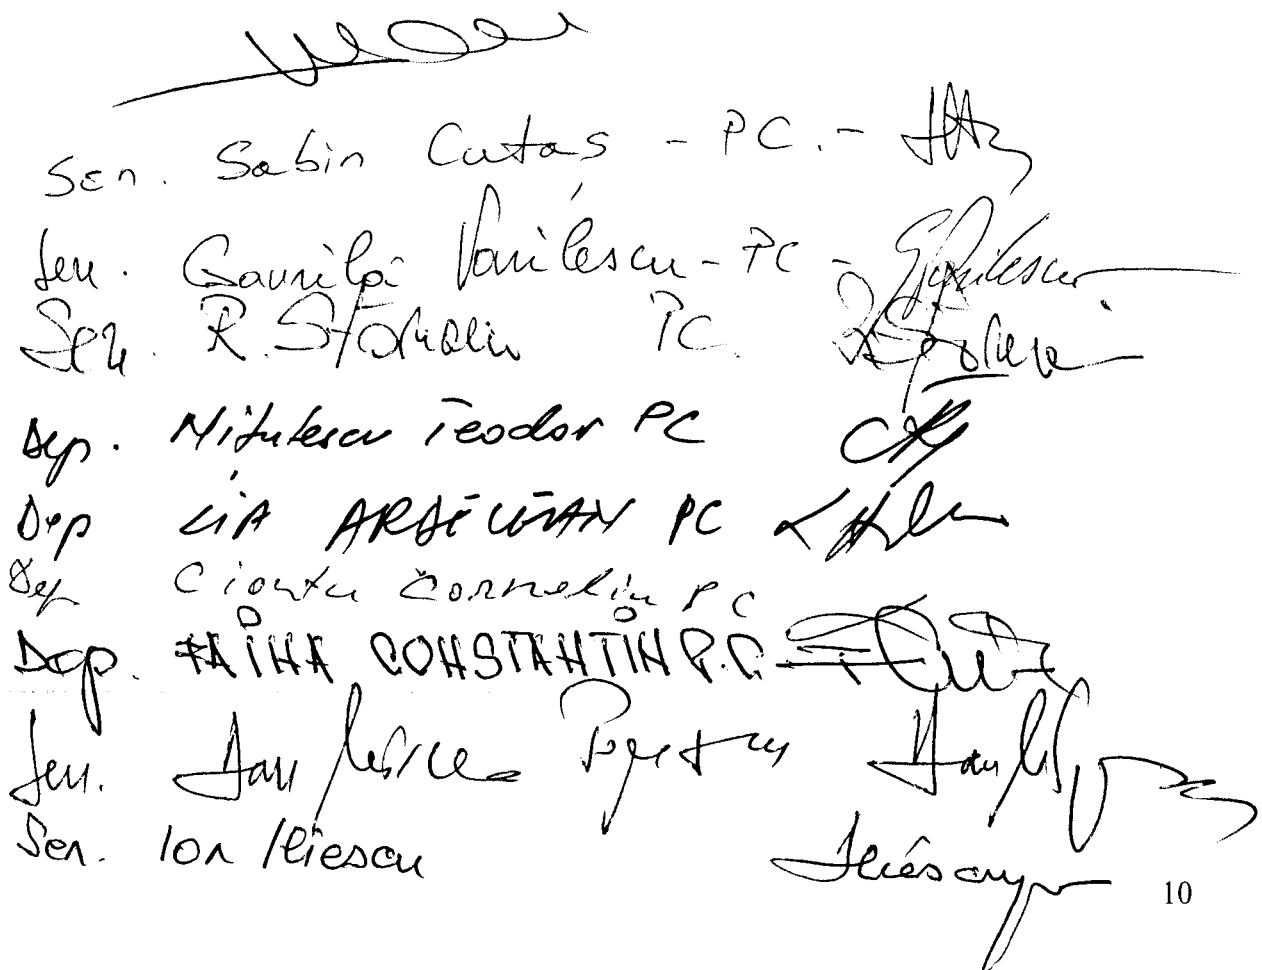 Sen. Sabin Cutaș - PC. -
Sen. Gavrilă Vasilescu - PC -
Sen. R. PC.
Dep. Nițulescu Teodor PC
Dep LIA ARDELEAN PC
Dep Ciontu Corneliu PC
Dep. FAINA CONSTANTIN P.C.
Sen. Dan Mircea Popescu
Sen. Ion Iliescu
10